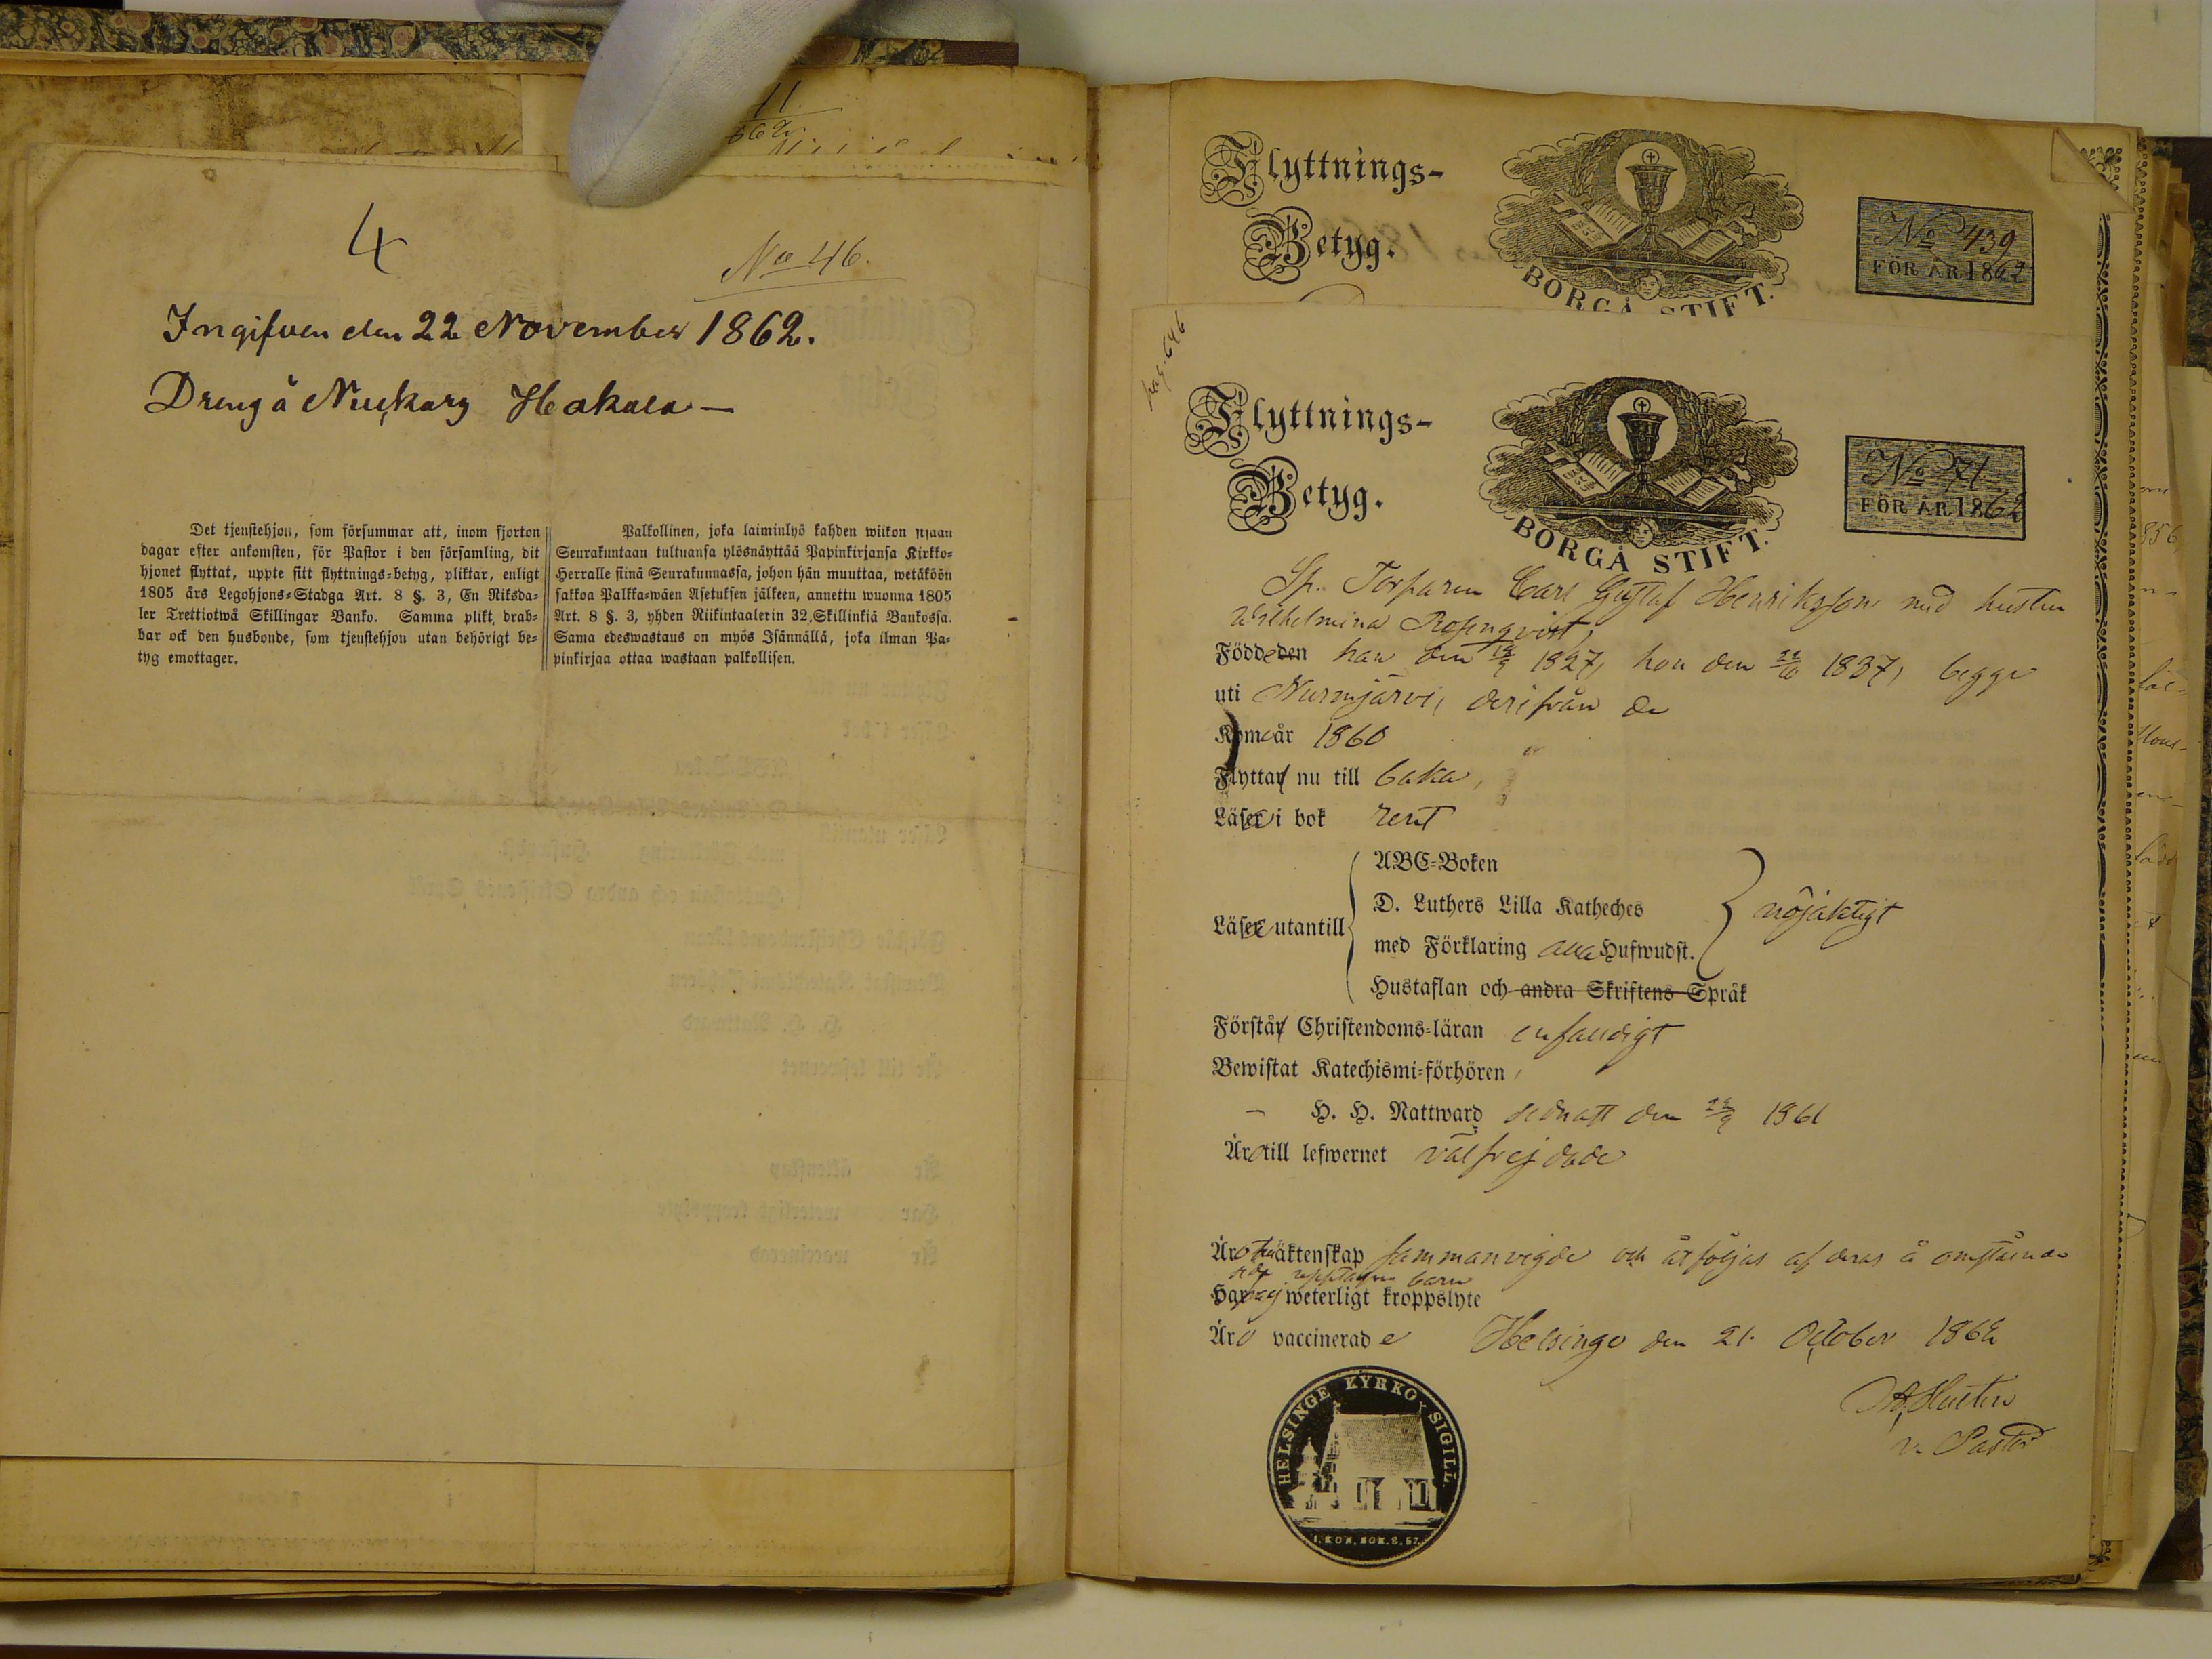 11.
862.
4
No 46.
Ingifven den 22 November 1862.
Dreng å Nuckary Hakala —
Det tjenstehjon, som försummar att, inom fjorton
dagar efter ankomsten, för Pastor i den församling, dit
hjonet flyttat, uppte sitt flyttnings=betyg, pliktar, enligt
1805 års Legohjons=Stadga Art. 8 §. 3, En Riksda=
ler Trettiotwå Skillingar Banko. Samma plikt drab=
bar ock den husbonde, som tjenstehjon utan behörigt be=
tyg emottager.
Palkollinen, joka laiminlyö kahden wiikon sisään
Seurakuntaan tultuansa ylösnäyttää Papinkirjansa Kirkko=
Herralle siinä Seurakunnassa, johon hän muuttaa, wetäköön
sakkoa Palkka=wäen Asetuksen jälkeen, annettu wuonna 1805
Art. 8 §. 3, yhden Riikintaalerin 32, Skillinkiä Bankossa.
Sama edeswastaus on myös Isännällä, joka ilman Pa=
pinkirjaa ottaa wastaan palkollisen.
Flyttnings-
Betyg.
BORGÅ STIFT.
No 439
FÖR ÅR 1862
pag. 646
Flyttnings-
Betyg.
BORGÅ STIFT.
No 71
FÖR ÅR 1862
Sp. Torparen Carl Gustaf Henriksson med hustru
Wilhelmina Rosenqvist,
Födde den han den 1827, hon den 1837, begge
uti Nurmijärvi, derifrån de
Komo år 1860
Flyttar nu till baka,
Läsa i bok rent
Läsa utantill
ABC=Boken
D. Luthers Lilla Katheches
med Förklaring Hufwudst.
Hustaflan och andra Skriftens Språk
nöjaktigt
Förstår Christendoms=läran enfaldigt
Bewistat Katechismi=förhören,
— H. H. Nattward sednast den 1861
Äro till lefwernet välfrejdade
Äro äktenskap sammanvigde och åtföljas af deras å omstående
sida upptagne barn
Har ej weterligt kroppslyte
Äro vaccinerade Helsinge den 21 October 1862
v. Pastor
HELSINGE KYRKO SIGILL
I. KON. BOK. 8. 57.